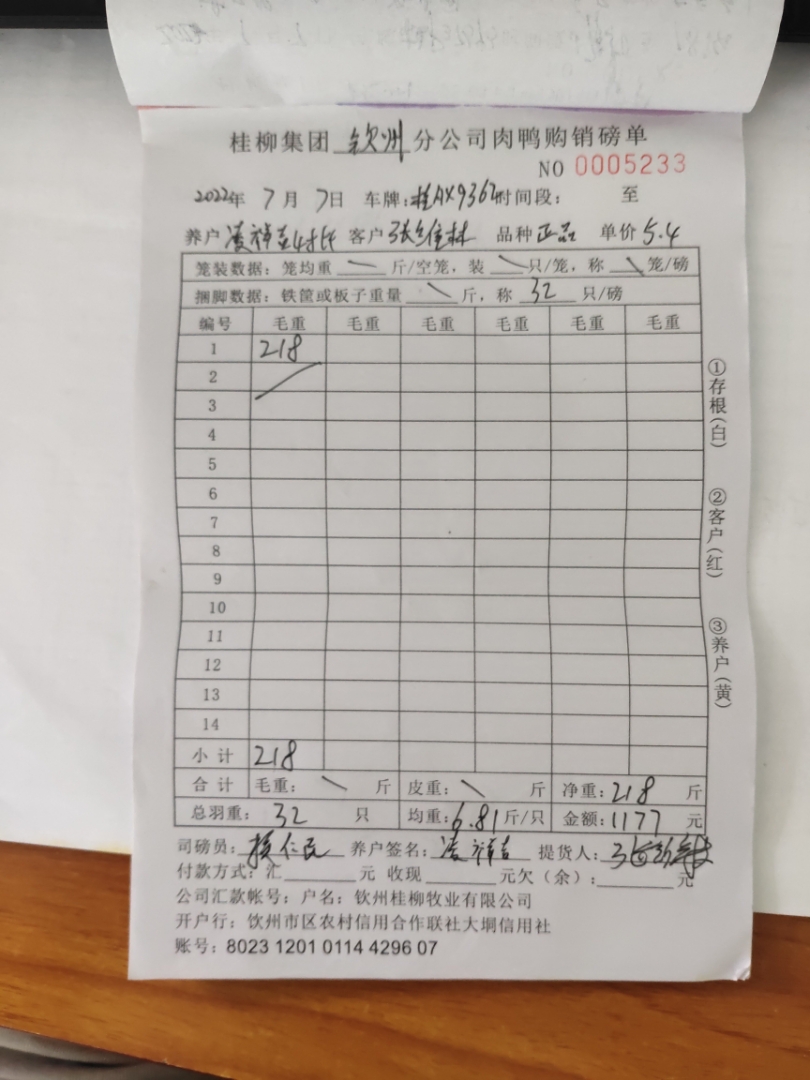 桂柳集团 钦州 分公司肉鸭购销磅单
NO 0005233
2022年 7月 7日 车牌:桂AX9362时间段: 至
养户 凌祥吉 客户 张 林 品种 正品 单价 5.4
笼装数据:笼均重 \ 斤/空笼,装 \ 只/笼,称 \ 笼/磅
捆脚数据:铁筐或板子重量 \ 斤,称 32 只/磅
编号 毛重 毛重 毛重 毛重 毛重 毛重
1 218
2
3
4
5
6
7
8
9
10
11
12
13
14
小计 218
合计 毛重: \ 斤 皮重: \ 斤 净重:218 斤
总羽重: 32 只 均重:6.81斤/只 金额:1177 元
司磅员: 仁民 养户签名: 凌祥吉 提货人:
付款方式:汇 元 收现 元欠(余): 元
公司汇款帐号:户名:钦州桂柳牧业有限公司
开户行:钦州市区农村信用合作联社大垌信用社
账号:8023 1201 0114 4296 07
①存根(白)
②客户(红)
③养户(黄)